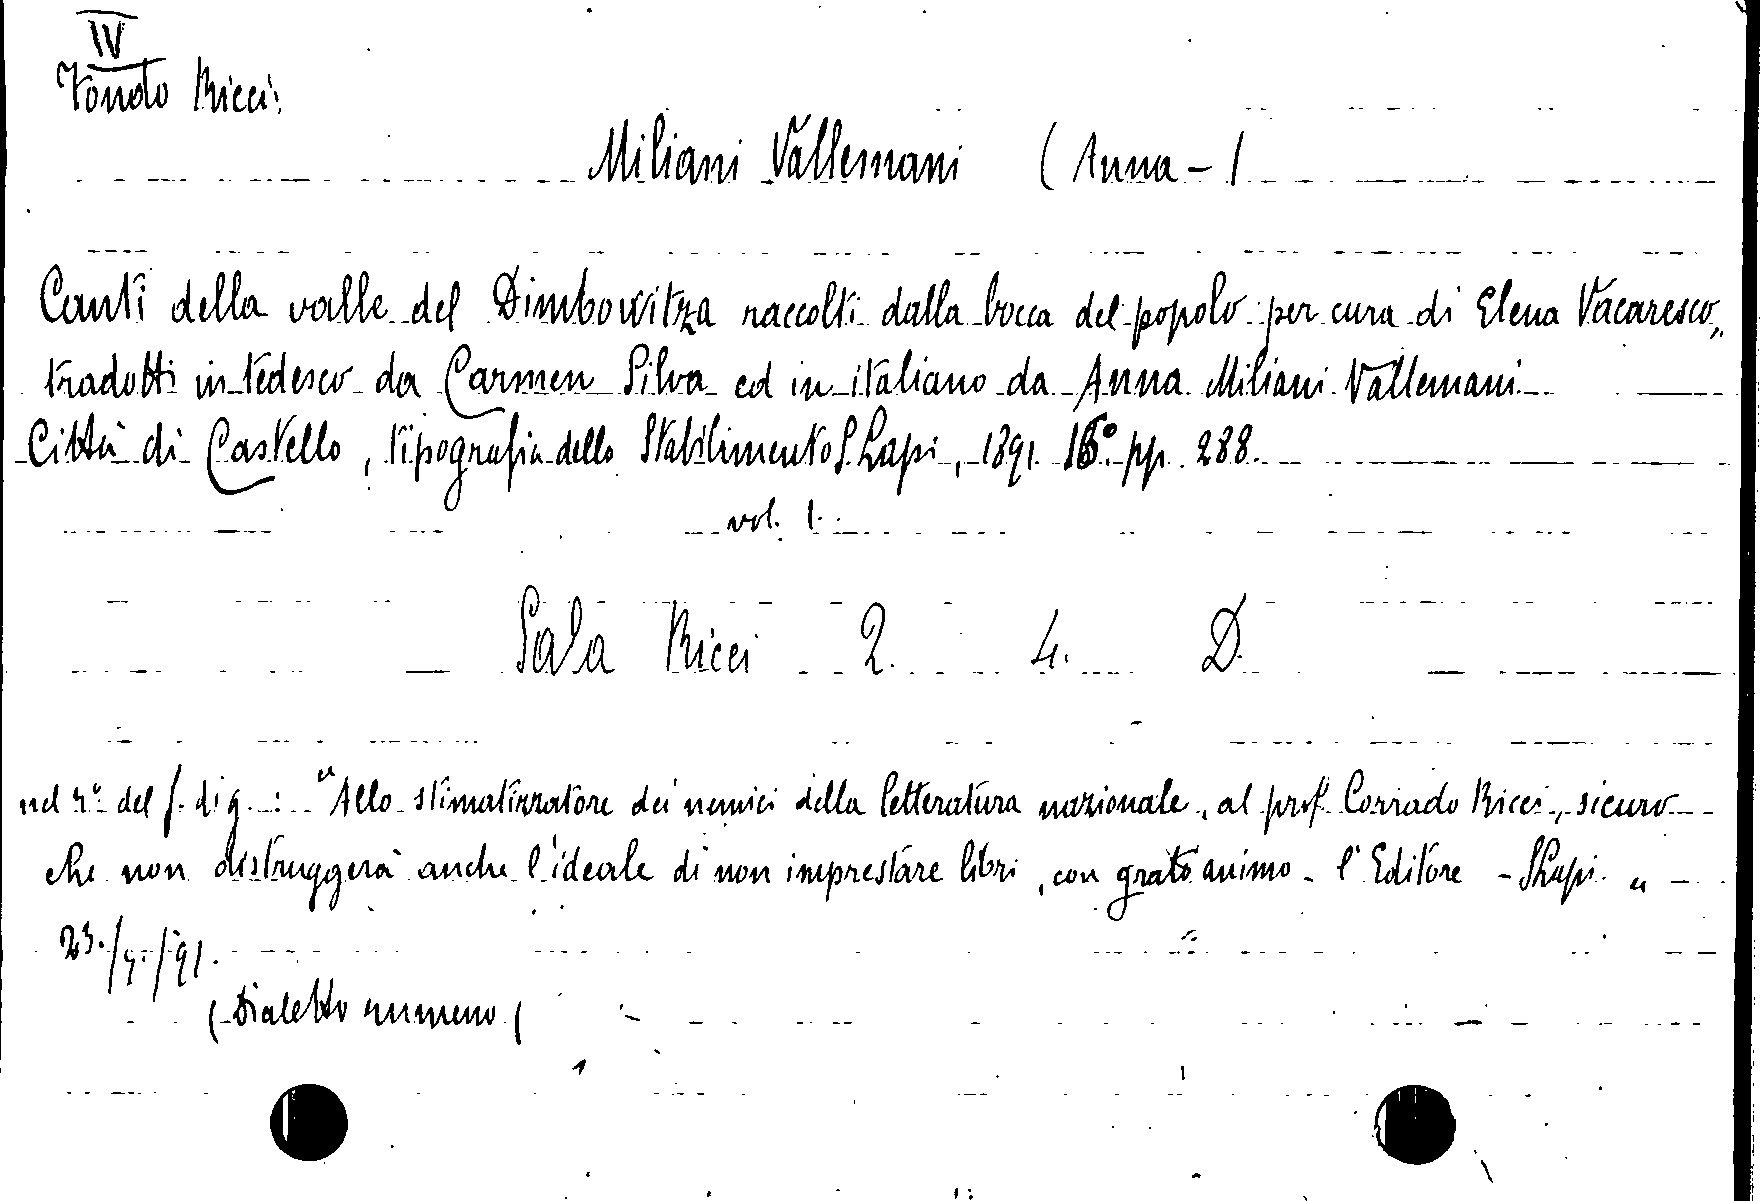 IV
Fondo Ricci:
Miliani Vallemani (Anna - )
Canti della valle del Dimbowitza raccolti dalla bocca del popolo per cura di Elena Vacaresco,
tradotti in tedesco da Carmen Silva ed in italiano da Anna Miliani Vallemani
Città di Castello, tipografia dello Stabilimento S. Lapi, 1891 16° pp. 288.
vol. 1.
Sala Ricci 2. 4. D.
nel r° del f. di g.: "Allo stimatizzatore dei nemici della letteratura nazionale, al prof. Corrado Ricci, sicuro
che non distruggerà anche l'ideale di non imprestare libri, con grato animo - l'Editore - S Lapi "
23./ /91.
(Dialetto rumeno)